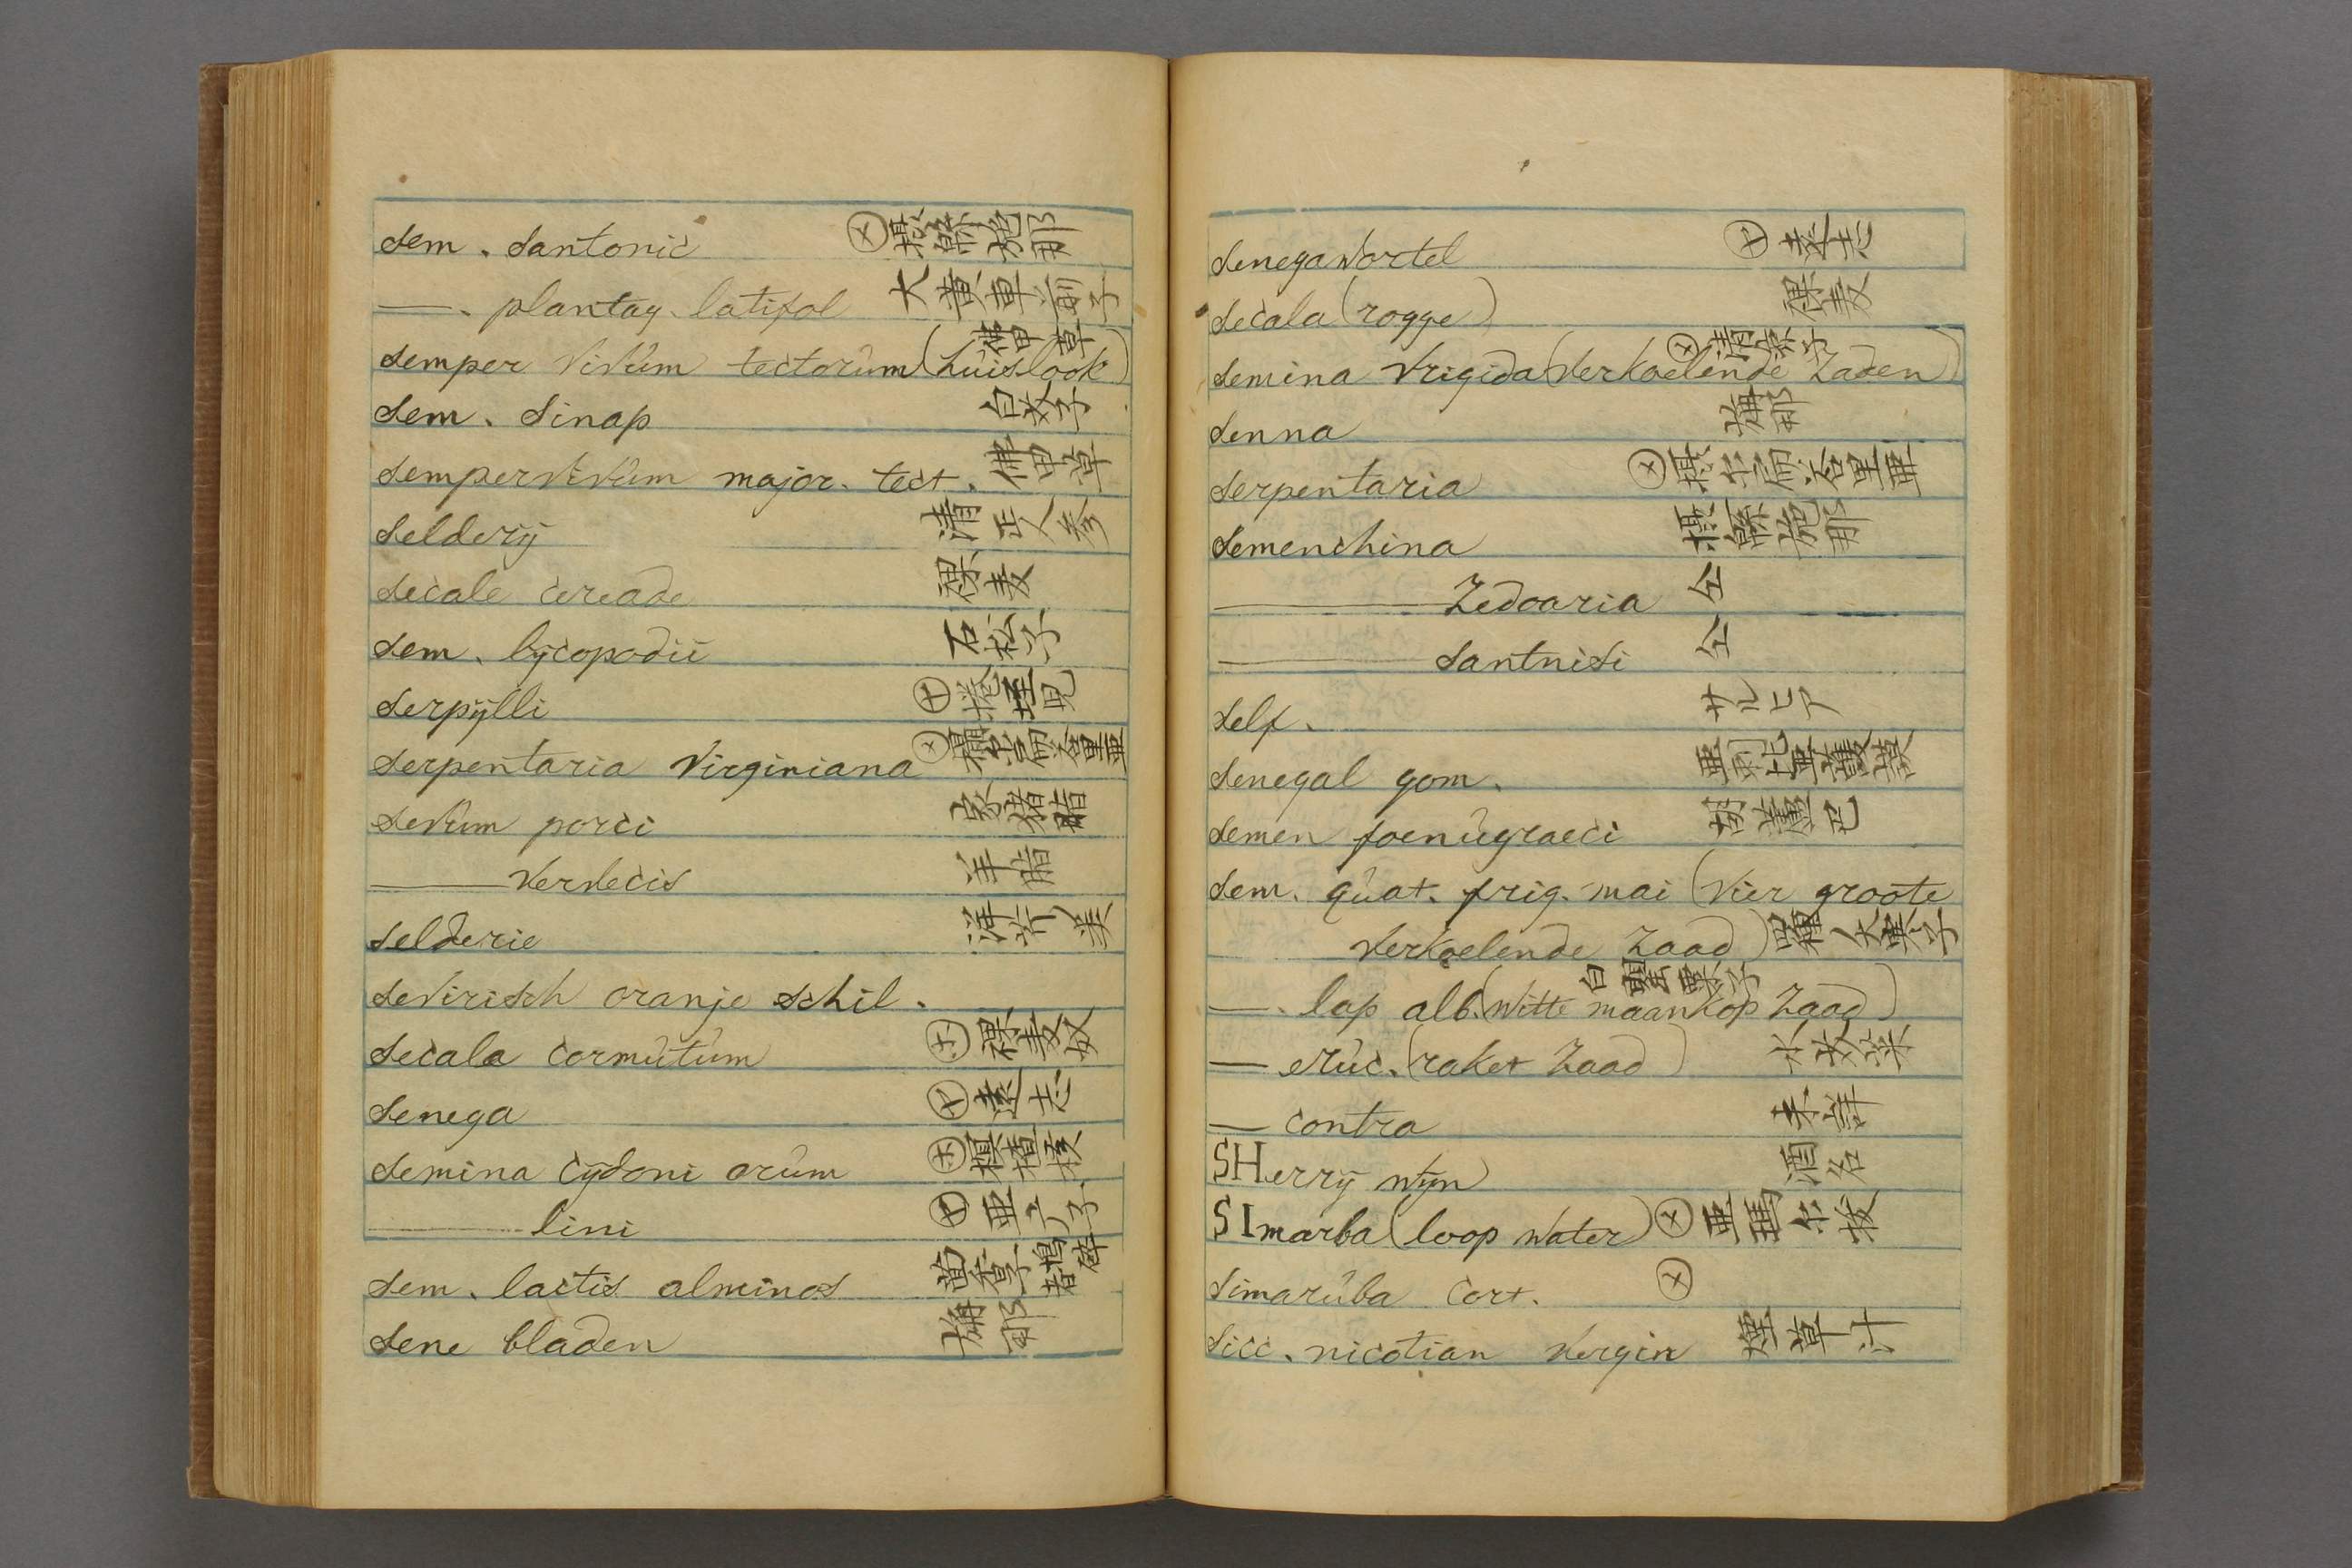 Sem. Santonic ㋱ 摂綿施那
—. plantag. latifol 大黄車前子
Semper vivûm tectorûm (huislook) 佛甲草
Sem. Sinap 白芥子
Sempervivûm major. tect. 佛甲草
Selderÿ 清正人参
Secale cereade 裸麦
Sem. lÿcopodii 石松子
Serpÿlli ㋝
Serpentaria Virginiana ㋱
Sevûm porci 豕猪脂
— vervecis 羊脂
Selderie
Sevirisch oranje schil.
Secala cormûtûm ㋭ 裸麦奴
Senega ㋝ 遠志
Semina cÿdoni orûm ㋭ 榠樝核
— lini ㋝ 亜麻子
Sem. lactis alminos 茴香
Sene bladen 旃那
Senegawortel ㋝ 遠志
Secala (rogge) 裸麦
Semina vrigida (verkoelende zaden) ㋱ 清涼子
Senna 旃那
Serpentaria ㋱
Semenchina 摂綿施那
— Zedoaria 仝
— Santnisi 仝
Self. サルヒア
Senegal gom. 亜剌比亜護謨
Semen foenûgraeci 胡蘆巴
Sem. qûat. frig. mai (vier groote
verkoelende zaad) 四種ノ大寒子
—. lap alb. (witte maankop zaad) 白罌粟子
— erûc. (raket zaad) 水芥菜
— contra
SHerrÿ wÿn 酒名
SImarba (loop water) ㋱
Simarûba Cort. ㋱
Sicc. nicotian vergin 煙草汁